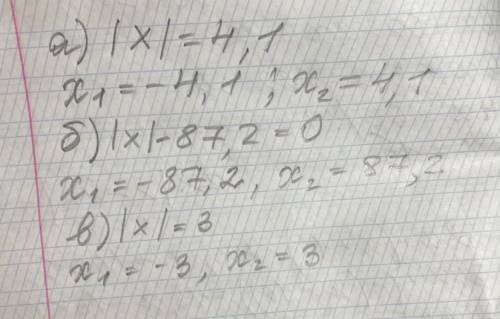 а) |x| = 4,1
x₁ = -4,1 ; x₂ = 4,1
б) |x| - 87,2 = 0
x₁ = -87,2, x₂ = 87,2
в) |x| = 3
x₁ = -3, x₂ = 3